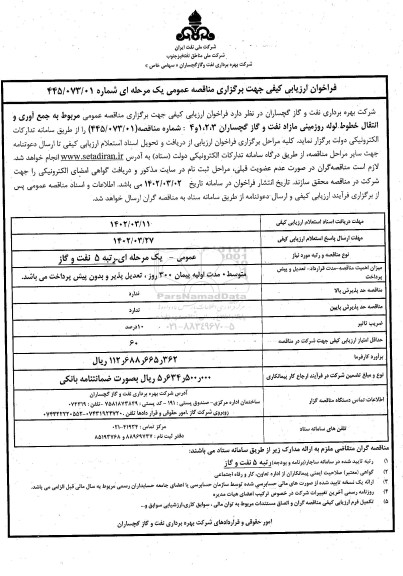 شرکت ملی نفت ایران
شرکت ملی مناطق نفتخیز جنوب
شرکت بهره برداری نفت و گاز گچساران « سهامی خاص »
فراخوان ارزیابی کیفی جهت برگزاری مناقصه عمومی یک مرحله ای شماره ۴۴۵/۰۷۳/۰۱
شرکت بهره برداری نفت و گاز گچساران در نظر دارد فراخوان ارزیابی کیفی جهت برگزاری مناقصه عمومی مربوط به جمع آوری و
انتقال خطوط لوله روزمینی مازاد نفت و گاز گچساران ۱،۲،۳و۴ : شماره مناقصه(۴۴۵/۰۷۳/۰۱) را از طریق سامانه تدارکات
الکترونیکی دولت برگزار نماید. کلیه مراحل برگزاری فراخوان ارزیابی از دریافت و تحویل اسناد استعلام ارزیابی کیفی تا ارسال دعوتنامه
جهت سایر مراحل مناقصه، از طریق درگاه سامانه تدارکات الکترونیکی دولت (ستاد) به آدرس www.setadiran.ir انجام خواهد شد.
لازم است مناقصه‌گران در صورت عدم عضویت قبلی، مراحل ثبت نام در سایت مذکور و دریافت گواهی امضای الکترونیکی را جهت
شرکت در مناقصه محقق سازند. تاریخ انتشار فراخوان در سامانه تاریخ ۱۴۰۲/۰۳/۰۲ می باشد. اطلاعات و اسناد مناقصه عمومی پس
از برگزاری فرآیند ارزیابی کیفی و ارسال دعوتنامه از طریق سامانه ستاد به مناقصه گران ارسال خواهد شد.
مهلت دریافت اسناد استعلام ارزیابی کیفی ۱۴۰۲/۰۳/۱۱
مهلت ارسال پاسخ استعلام ارزیابی کیفی ۱۴۰۲/۰۳/۲۷
نوع مناقصه و رتبه مورد نیاز عمومی - یک مرحله ای-رتبه ۵ نفت و گاز
میزان اهمیت مناقصه-مدت قرارداد- تعدیل و پیش پرداخت متوسط- مدت اولیه پیمان ۳۰۰ روز ، تعدیل پذیر و بدون پیش پرداخت می باشد.
مناقصه حد پذیرش بالا ندارد
مناقصه حد پذیرش پایین ندارد
ضریب تاثیر ۱۰درصد
حداقل امتیاز ارزیابی کیفی جهت شرکت در مناقصه ۶۰
برآورد کارفرما ۱۱۲٫۶۸۸٫۶۶۵٫۳۶۲ ریال
نوع و مبلغ تضمین شرکت در فرآیند ارجاع کار پیمانکاری ۵٫۶۳۴٫۵۰۰٫۰۰۰ ریال بصورت ضمانتنامه بانکی
اطلاعات تماس دستگاه مناقصه گزار آدرس شرکت بهره برداری نفت و گاز گچساران
ساختمان اداره مرکزی- صندوق پستی : ۱۹۱ - کد پستی : ۷۵۸۱۸۷۳۸۴۹ -تلفن : ۰۷۴۳۱۹
روبروی شرکت گاز ,امور حقوقی و قرار دادها تلفن
تلفن های سامانه ستاد مرکز تماس : ۴۱۹۳۴-۰۲۱
دفتر ثبت نام : ۸۸۹۶۹۷۳۷ و ۸۵۱۹۳۷۶۸
ParsNamadData
۰۲۱-۸۸۳۴۹۶۷۰-۵
مناقصه گران متقاضی ملزم به ارائه مدارک زیر از طریق سامانه ستاد می باشند:
۱) رتبه تایید شده در سامانه ساجار(برنامه و بودجه)رتبه ۵ نفت و گاز
۲) گواهی (معتبر) صلاحیت ایمنی پیمانکاران از اداره تعاون، کار و رفاه اجتماعی
۳) ارائه یک نسخه تایید شده از صورت های مالی حسابرسی شده توسط سازمان حسابرسی یا اعضای جامعه حسابداران رسمی مربوط به سال مالی قبل الزامی می باشد.
۴) روزنامه رسمی آخرین تغییرات شرکت در خصوص ترکیب اعضای هیات مدیره
۵) تکمیل فرم ارزیابی کیفی مناقصه گران و الصاق مستندات مربوط به توان مالی ، سوابق کاری،ارزشیابی سوابق و..
امور حقوقی و قراردادهای شرکت بهره برداری نفت و گاز گچساران